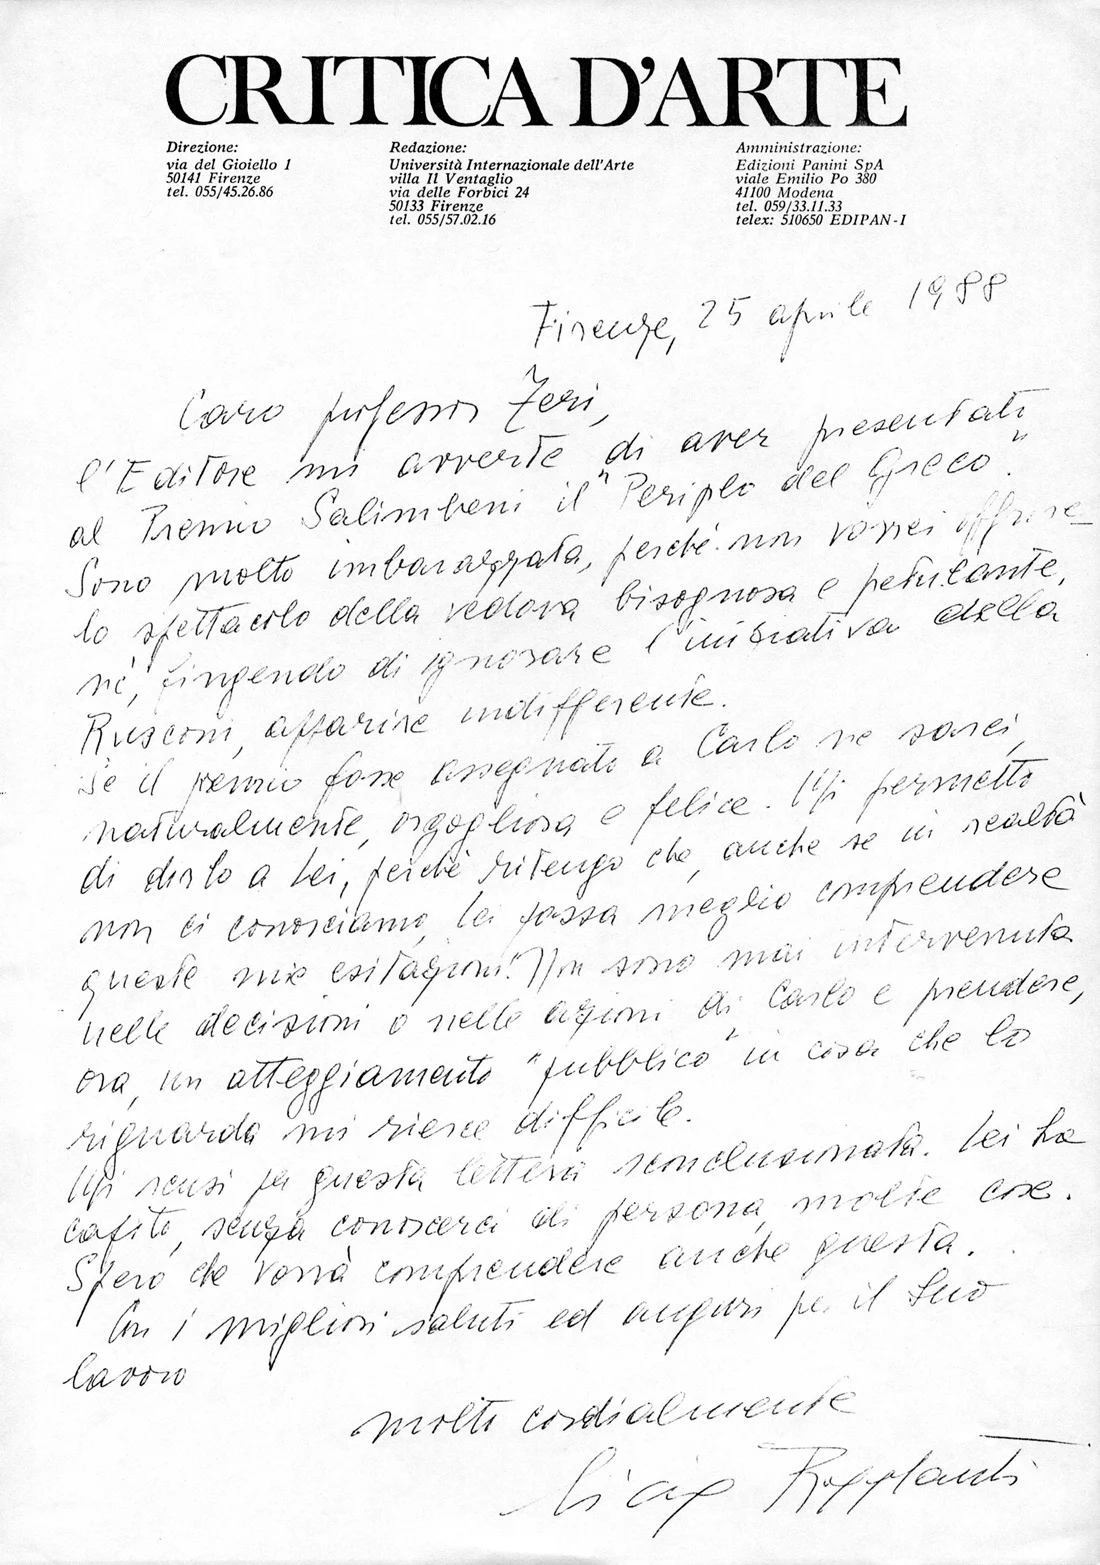 CRITICA D'ARTE
Direzione:
via del Gioiello 1
50141 Firenze
tel. 055/45.26.86
Redazione:
Università Internazionale dell'Arte
villa Il Ventaglio
via delle Forbici 24
50133 Firenze
tel. 055/57.02.16
Amministrazione:
Edizioni Panini SpA
viale Emilio Po 380
41100 Modena
tel. 059/33.11.33
telex: 510650 EDIPAN-I
Firenze, 25 aprile 1988
Caro professor Zeri,
l'Editore mi avverte di aver presentato
al Premio Salimbeni il "Periplo del Greco".
Sono molto imbarazzata, perché non vorrei offrire
lo spettacolo della vedova bisognosa e petulante,
né, fingendo di ignorare l'iniziativa della
Rusconi, apparire indifferente.
Se il premio fosse assegnato a Carlo ne sarei,
naturalmente, orgogliosa e felice. Mi permetto
di dirlo a Lei, perché ritengo che, anche se in realtà
non ci conosciamo, Lei possa meglio comprendere
queste mie esitazioni. Non sono mai intervenuta
nelle decisioni o nelle azioni di Carlo e prendere,
ora, un atteggiamento "pubblico" in cosa che lo
riguarda mi riesce difficile.
Mi scusi per questa lettera sconclusionata. Lei ha
capito, senza conoscerci di persona, molte cose.
Spero che vorrà comprendere anche questa.
Con i migliori saluti ed auguri per il Suo
lavoro
molto cordialmente
Licia Ragghianti